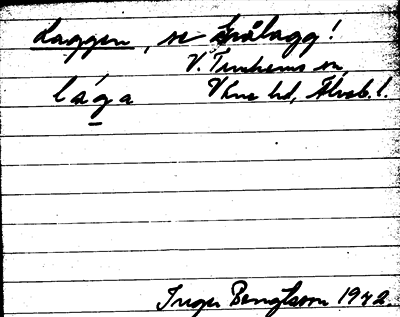 Laggen, se Grålagg!
V. Tunhems sn
låga Vkne hd, Älvsb. l.
Inger Bengtsson 1942.